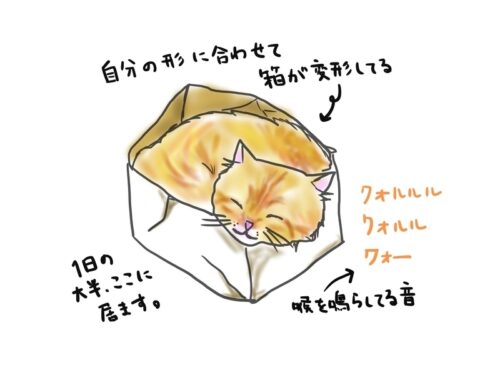 自分の形に合わせて
箱が変形してる
クォルルル
クォルル
クォー
1日の
大半、ここに
居ます。
喉を鳴らしてる音